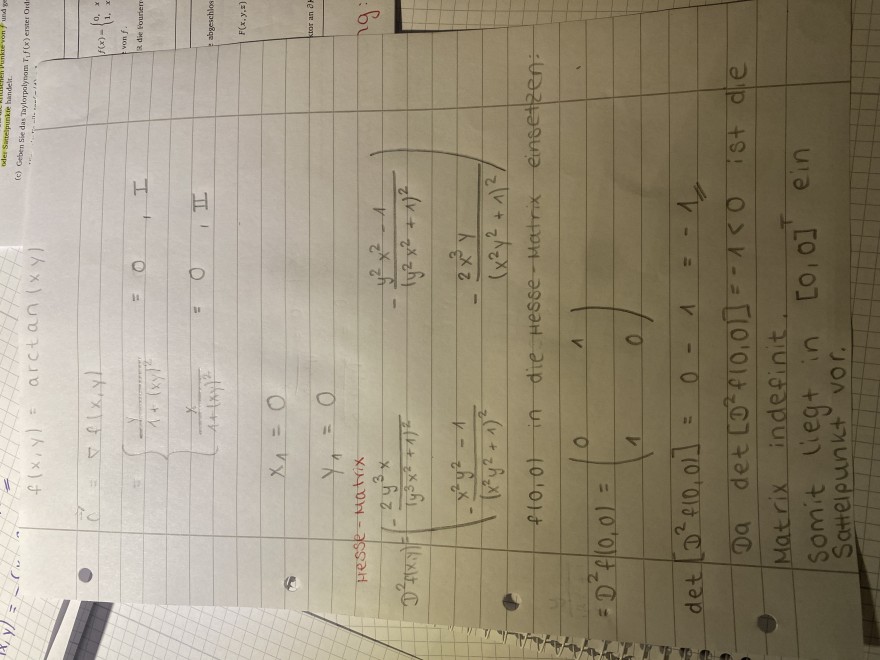 f(x,y) = arctan(xy)
0⃗ = ∇ f(x,y)
= { y / (1+(xy)²) = 0 , I
x / (1+(xy)²) = 0 , II
x₁ = 0
y₁ = 0
Hesse-Matrix
D²f(x,y) = ( - 2y³x / (y³x²+1)²   - (y²x² - 1) / (y²x²+1)²
- (x²y² - 1) / (x²y²+1)²   - 2x³y / (x²y²+1)² )
f(0,0) in die Hesse-Matrix einsetzen:
= D²f(0,0) = ( 0 1
1 0 )
det [D²f(0,0)] = 0 - 1 = -1
Da det [D²f(0,0)] = -1 < 0 ist die
Matrix indefinit.
Somit liegt in [0,0]ᵀ ein
Sattelpunkt vor.
oder Sattelpunkte handelt.
(c) Geben Sie das Taylorpolynom T₁f(x) erster
von f.
F(x,y,z)